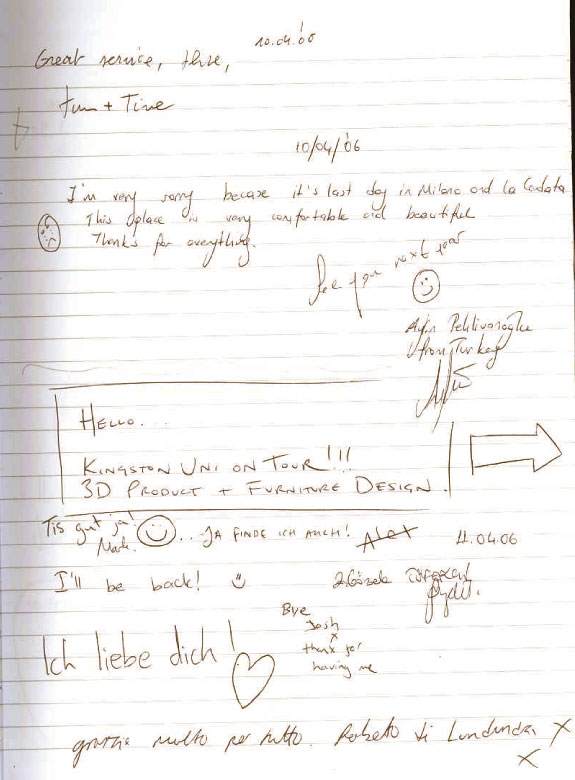 10.04.06
Great service, three,
fun + Time
10/04/'06
I'm very sorry becase it's last day in Milano and la Cordata
This place is very comfortable and beautiful
Thanks for everything.
See you next year
Pehlivanoğlu
from Turkey
HELLO...
KINGSTON UNI ON TOUR!!!
3D PRODUCT + FURNITURE DESIGN.
Tis gut ja!
Mark. ...JA FINDE ICH AUCH! Alex 11.04.06
I'll be back!
Bye
Josh
x
thank for
having me
Ich liebe dich!
grazie molto per tutto. Roberto di Londondra X
X